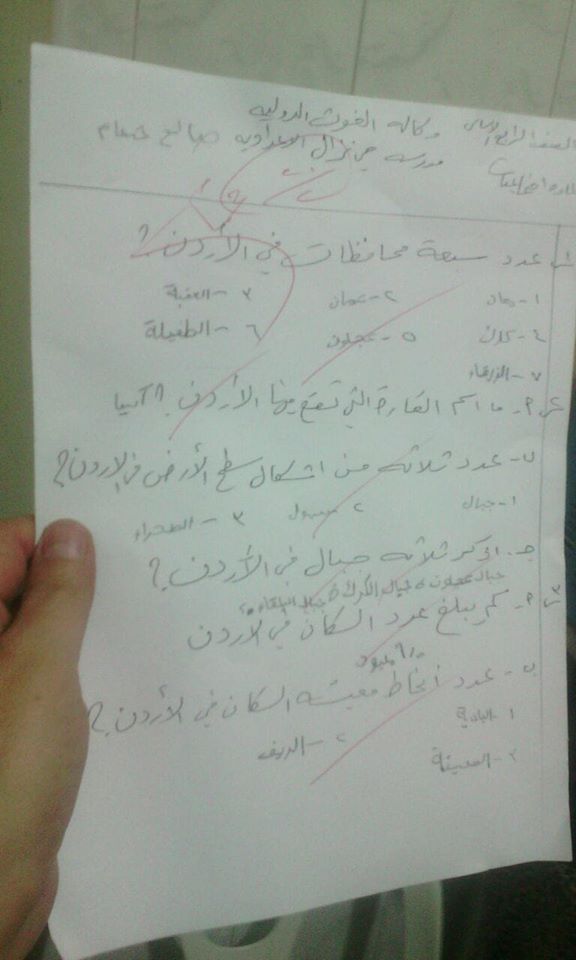 الصف الرابع الاساسي وكاله الغوث الدوليه
مدرسه حي نزال الاعداديه صالح همام
س١ عدد سبعة محافظات في الأردن؟
١- معان ٢- عمان ٣- العقبة
٤- عجلون ٦- الطفيلة
٧- الزرقاء
س٢ ٢- ما اسم القارة التي تقع فيها الأردن؟ آسيا
ب- عدد ثلاثه من اشكال سطح الأرض في الاردن؟
١- جبال ٢- سهول ٣- الصحراء
جـ- اذكر ثلاثه جبال في الأردن؟
جبال عجلون و جبال الكرك و جبال البلقاء
س٣ ٢- كم يبلغ عدد السكان في الاردن
مليون
ب- عدد أنماط معيشه السكان في الأردن؟
١- البادية ٢- الريف
٣- المدينة